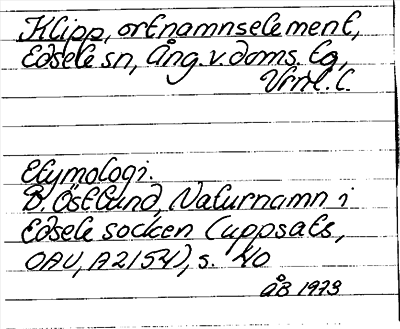 Klipp, ortnamnselement,
Edsele sn, Ång.v.doms. tg,
Vrnl. l.
Etymologi.
B. Östlund, Naturnamn i
Edsele socken (uppsats,
OAU, A2154), s. 40
ÅB 1973